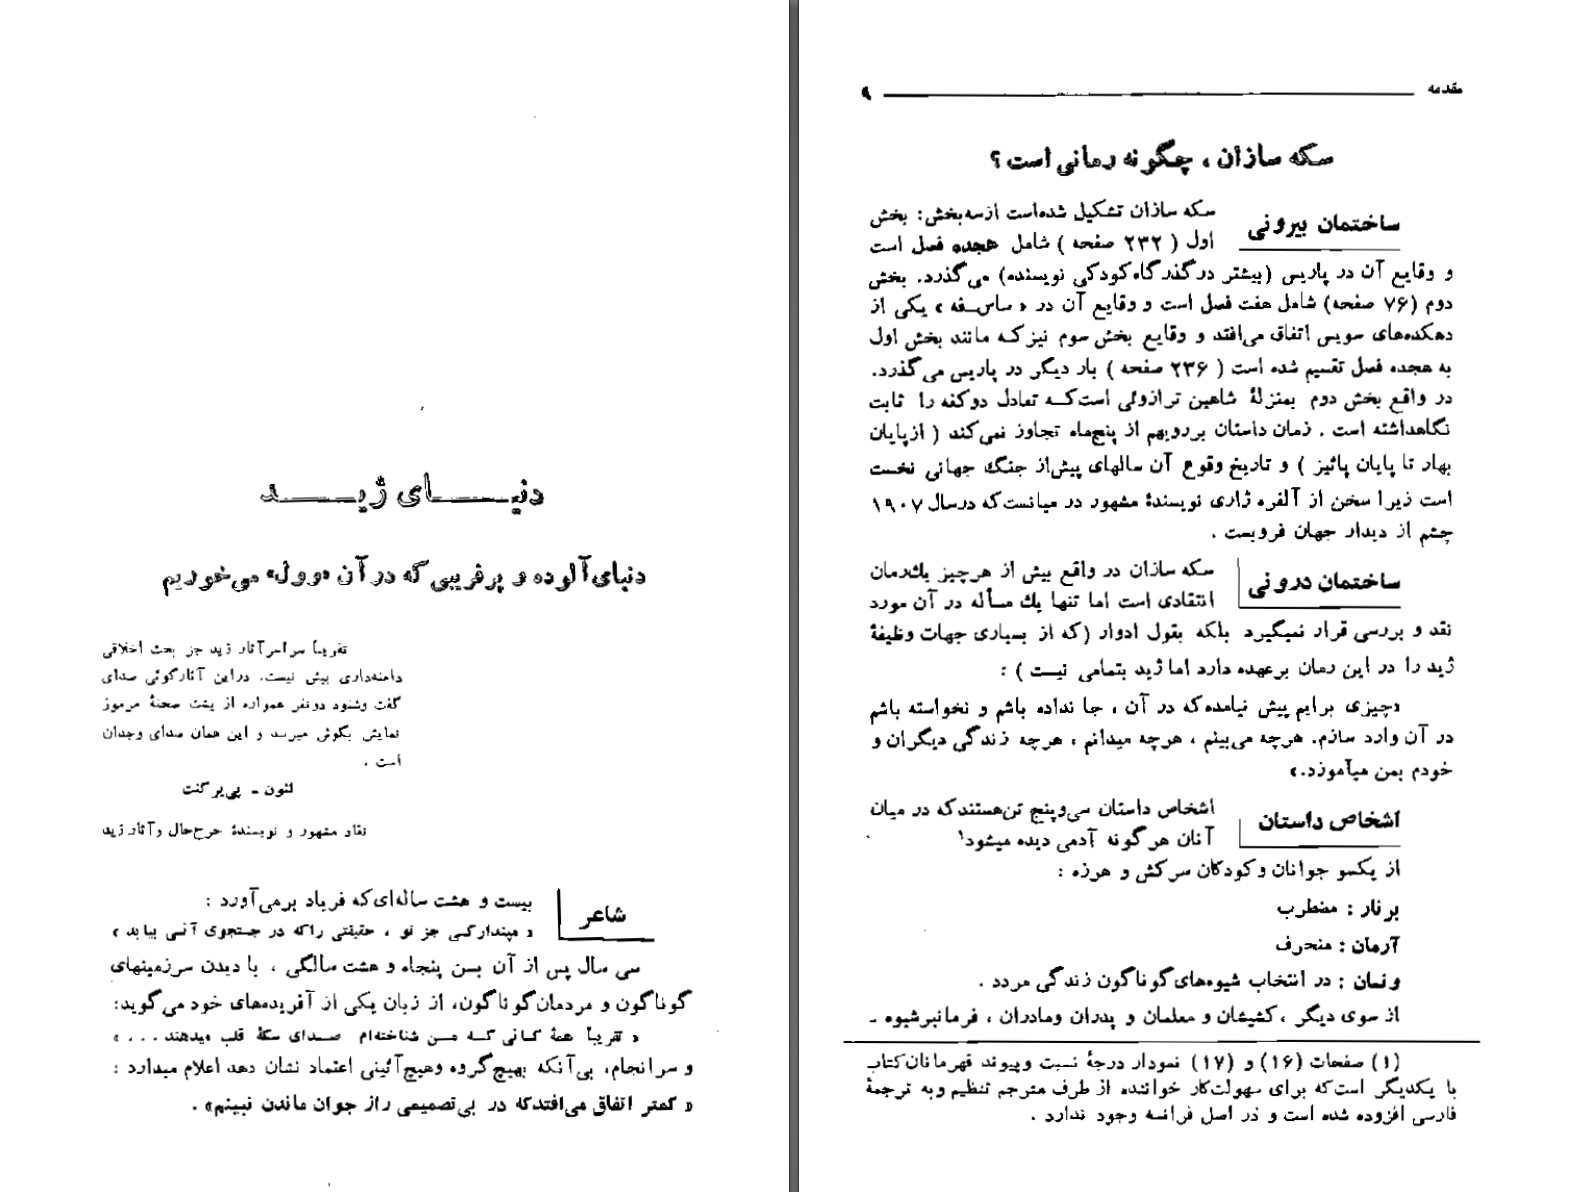 مقدمه ۹
سکه سازان ، چگونه رمانی است ؟
ساختمان بیرونی
سکه سازان تشکیل شده‌است ازسه‌بخش : بخش
اول ( ۲۳۲ صفحه ) شامل هجده فصل است
و وقایع آن در پاریس (بیشتر در گذرگاه کودکی نویسنده) می‌گذرد. بخش
دوم (۷۶ صفحه) شامل هفت فصل است و وقایع آن در « ساس‌فه » یکی از
دهکده‌های سویس اتفاق می‌افتد و وقایع بخش سوم نیز که مانند بخش اول
به هجده فصل تقسیم شده است ( ۲۳۶ صفحه ) بار دیگر در پاریس می‌گذرد.
در واقع بخش دوم بمنزلهٔ شاهین ترازوئی است‌که تعادل دوکفه را ثابت
نگاهداشته است . زمان داستان بررویهم از پنج‌ماه تجاوز نمی‌کند ( ازپایان
بهار تا پایان پائیز ) و تاریخ وقوع آن سالهای پیش‌از جنگ جهانی نخست
است زیرا سخن از آلفره ژاری نویسندهٔ مشهور در میانست‌که درسال ۱۹۰۷
چشم از دیدار جهان فروبست .
ساختمان درونی
سکه سازان در واقع بیش از هرچیز یك‌رمان
انتقادی است اما تنها یك مسأله در آن مورد
نقد و بررسی قرار نمیگیرد بلکه بقول ادوار (که از بسیاری جهات وظیفهٔ
ژید را در این رمان برعهده دارد اما ژید بتمامی نیست ) :
«چیزی برایم پیش نیامده‌که در آن ، جا نداده باشم و نخواسته باشم
در آن وارد سازم. هرچه می‌بینم ، هرچه میدانم ، هرچه زندگی دیگران و
خودم بمن میآموزد.»
اشخاص داستان
اشخاص داستان سی‌وپنج تن‌هستندکه در میان
آنان هرگونه آدمی دیده میشود۱
از یکسو جوانان وکودکان سرکش و هرزه :
برنار : مضطرب
آرمان : منحرف
ونسان : در انتخاب شیوه‌های گوناگون زندگی مردد .
از سوی دیگر ، کشیشان و معلمان و پدران ومادران ، فرمانبرشیوه ـ
(۱) صفحات (۱۶) و (۱۷) نمودار درجهٔ نسبت وپیوند قهرمانان‌کتاب
با یکدیگر است‌که برای سهولت‌کار خواننده از طرف مترجم تنظیم وبه ترجمهٔ
فارسی افزوده شده است و در اصل فرانسه وجود ندارد .
دنیـــای ژیـــد
دنیای‌آلوده و پرفریبی که در آن «وول» می‌خوریم
تقریباً سراسرآثار ژید جز بحث اخلاقی
دامنه‌داری بیش نیست. دراین آثارگوئی صدای
گفت وشنود دونفر همواره از پشت صحنهٔ مرموز
نمایش بگوش میرسد و این همان صدای وجدان
است .
لئون ـ پی‌یر کنت
نقاد مشهور و نویسندهٔ شرح‌حال وآثار ژید
شاعر
بیست و هشت ساله‌ای‌که فریاد برمی‌آورد :
« مپندارکسی جز تو ، حقیقتی راکه در جستجوی آنـی بیابد »
سی سال پس از آن بسن پنجاه و هشت سالگی ، با دیدن سرزمینهای
گوناگون و مردمان‌گوناگون، از زبان یکی از آفریده‌های خود می‌گوید:
« تقریباً همهٔ کسانی کـه مـن شناخته‌ام صـدای سکهٔ قلب میدهند ... »
و سرانجام، بی‌آنکه بهیچ‌گروه وهیچ‌آئینی اعتماد نشان دهد اعلام میدارد :
« کمتر اتفاق می‌افتدکه در بی‌تصمیمی راز جوان ماندن نبینم» .